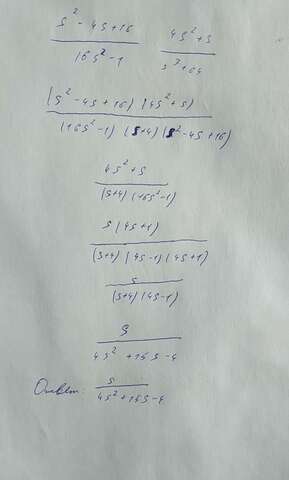 s² - 4s + 16 / 16s² - 1   4s² + s / s³ + 64
(s² - 4s + 16) (4s² + s) / (16s² - 1) (s + 4) (s² - 4s + 16)
4s² + s / (s + 4) (16s² - 1)
s (4s + 1) / (s + 4) (4s - 1) (4s + 1)
s / (s + 4) (4s - 1)
s / 4s² + 15s - 4
Ответ: s / 4s² + 15s - 4